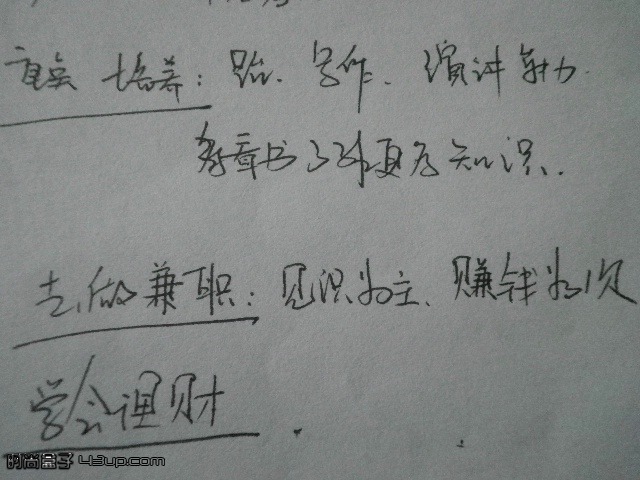 重点培养：跆、写作、演讲能力.
多看书了解更多知识、.
去做兼职：见识为主、赚钱为次
学会理财.
时尚盒子 43up.com